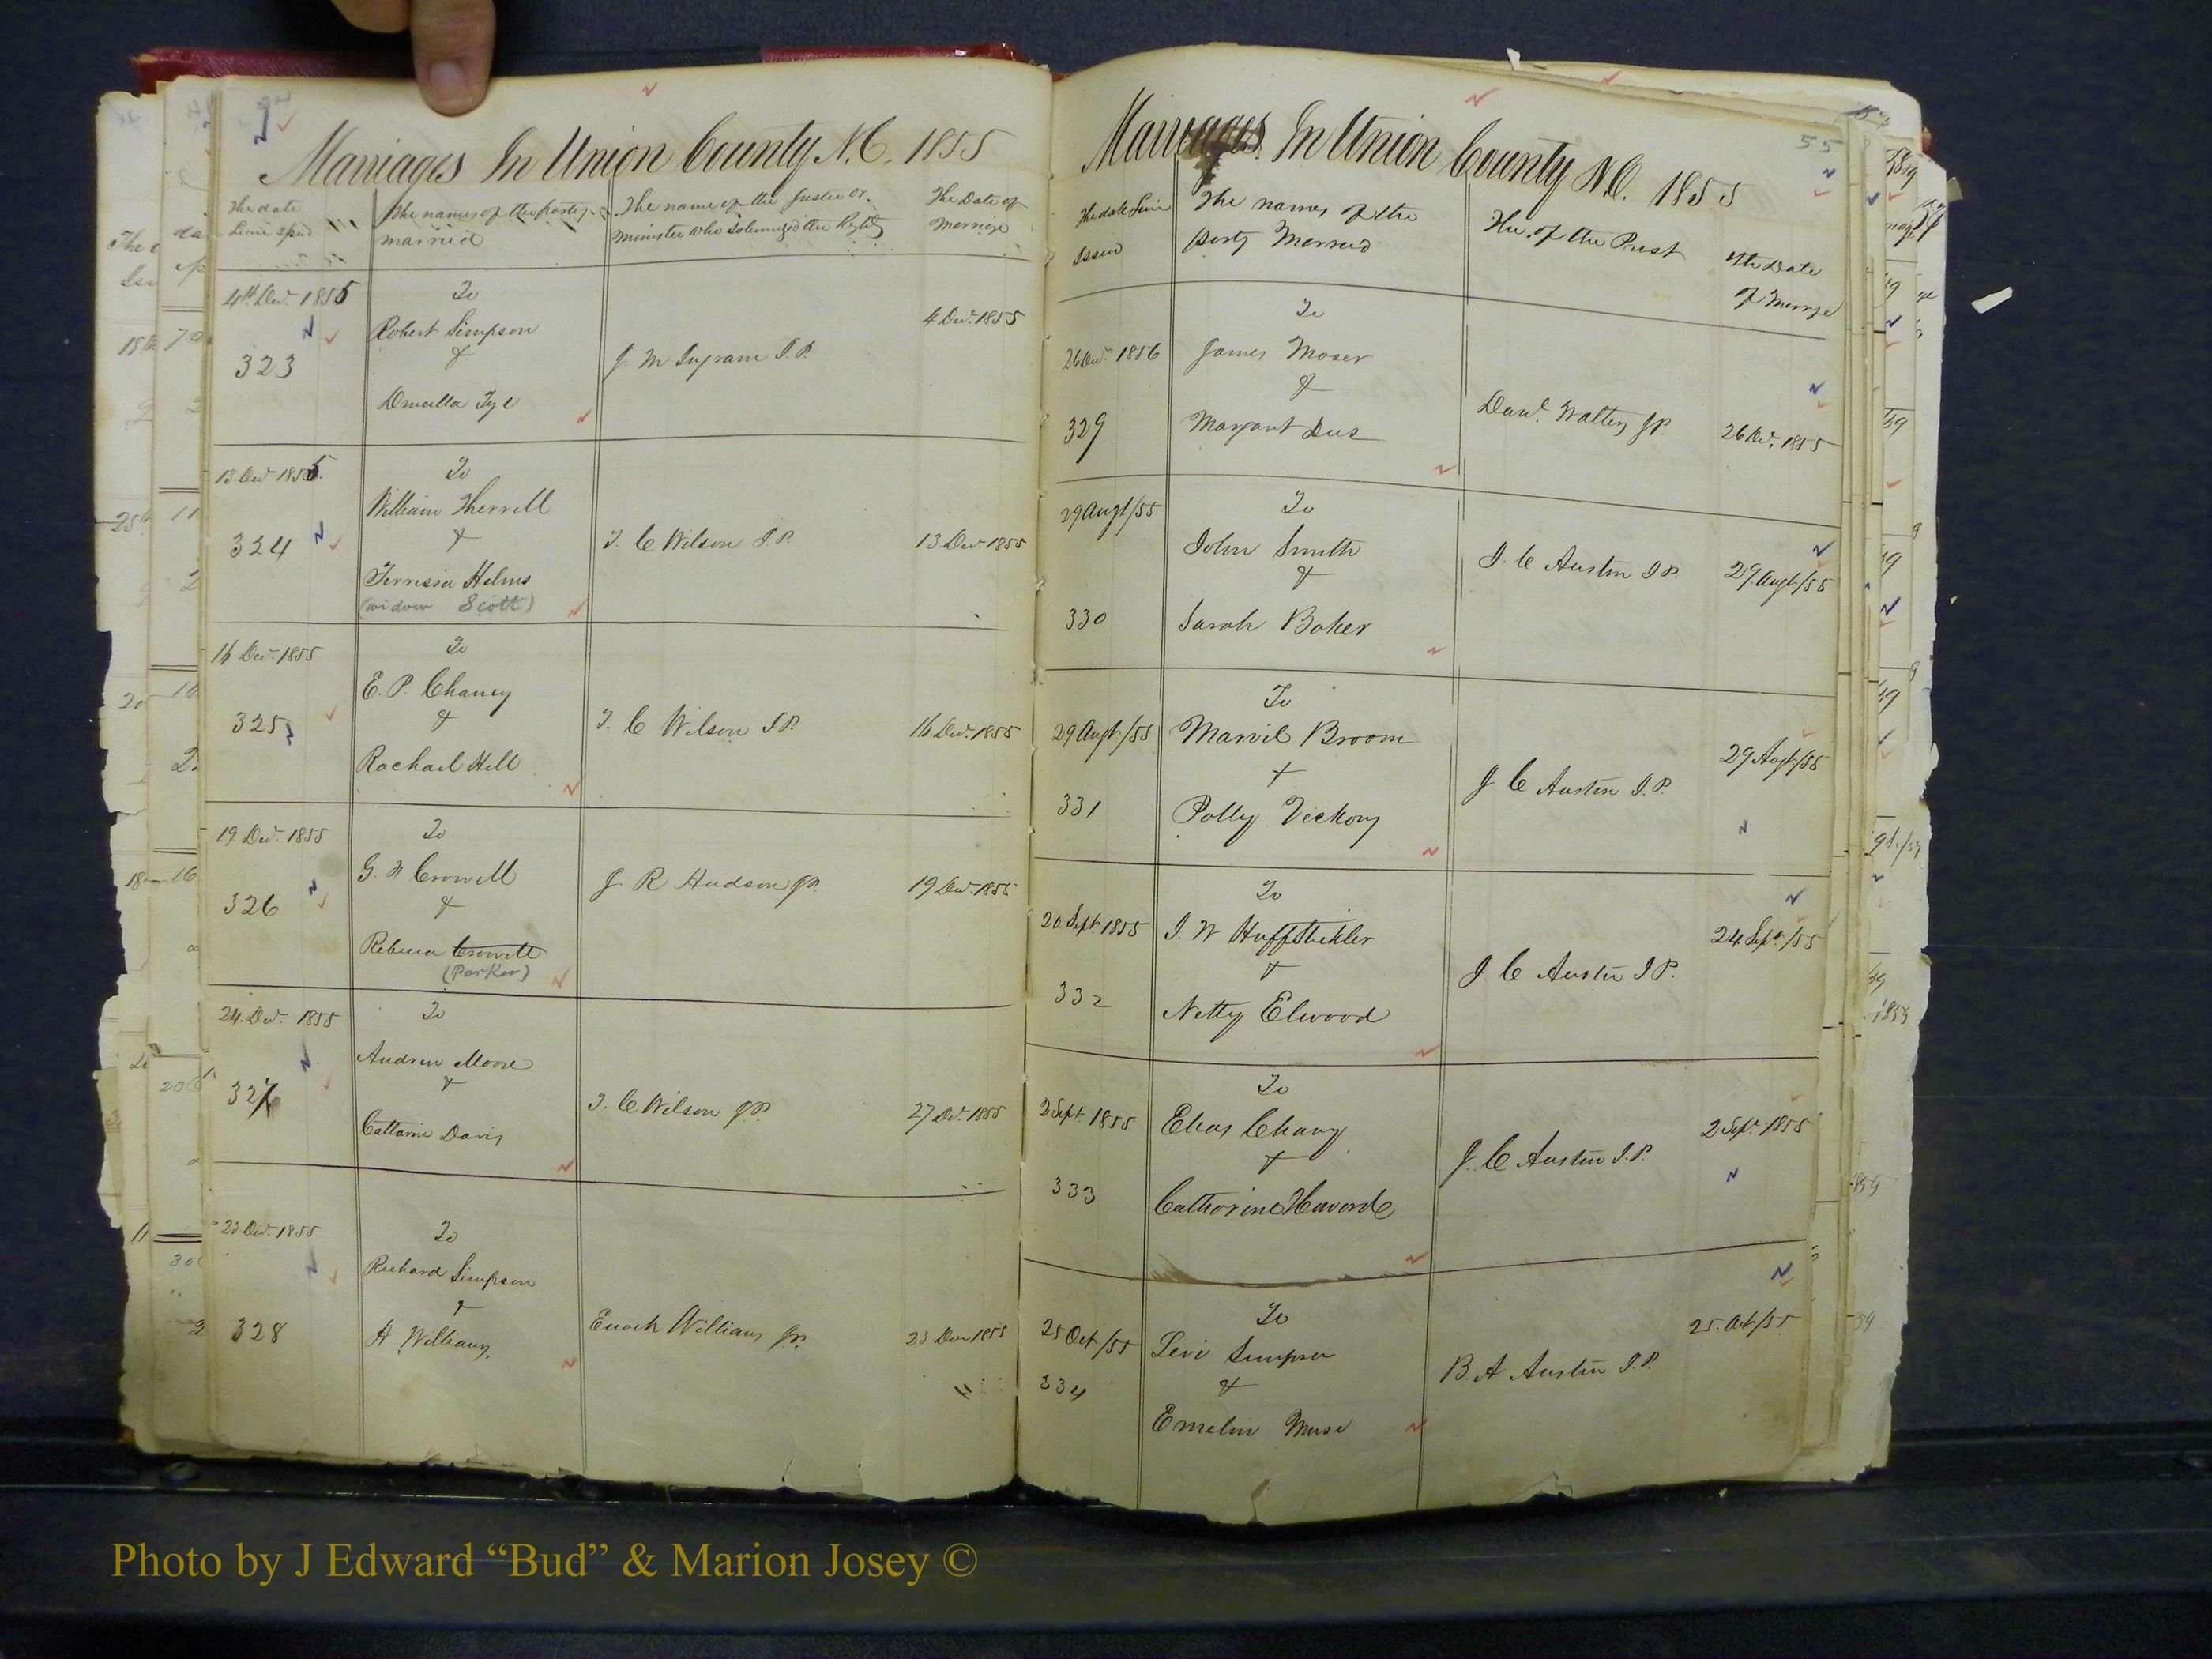 Marriages In Union County N.C. 1855
The date
Licen issued
The names of the partys
married
The name of the Justice or
minister who solemnized the Rights
The Date of
Marriage
4th Dec. 1855
To
Robert Simpson
&
323
J M Ingram J.P.
4 Dec. 1855
13 Dec. 1855
To
William Therrell
&
324
Terrissa Helms
(widow Scott)
J. C Wilson J.P.
13 Dec. 1855
16 Dec. 1855
To
E. P. Chaney
&
325
Rachael Hill
J. C Wilson J.P.
16 Dec. 1855
19 Dec. 1855
To
Crowell
&
326
Rebecca Crowell
(Parker)
J R Hudson JP.
19 Dec. 1855
24 Dec. 1855
To
Andrew Moore
&
327
Davis
J. C Wilson J.P.
27 Dec. 1855
23 Dec. 1855
To
Richard Simpson
&
328
H Williams
Enoch Williams JP.
23 Dec 1855
Marriages In Union County N.C. 1855
55
Issued
The names of the
party Married
The Date
of Marrage
26 Dec. 1856
To
James Moser
&
329
Danl. Walters JP.
26 Dec. 1855
29 Augt/55
To
John Smith
&
330
Sarah Baker
J. C Austin J.P.
29 Augt/55
29 Augt/55
To
Marvil Broom
+
331
Polly Vickory
J C Austin J.P.
29 Augt/55
20 Sept 1855
To
J. W Huffstickler
+
332
Netty Elwood
J. C Austin J.P.
24 Sept/55
2 Sept. 1855
To
Elias Chany
+
333
J. C Austin J.P.
2 Sept. 1855
25 Oct/55
To
Levi Simpson
&
334
B. A Austin J.P.
25 Oct/55
Photo by J Edward “Bud” & Marion Josey ©